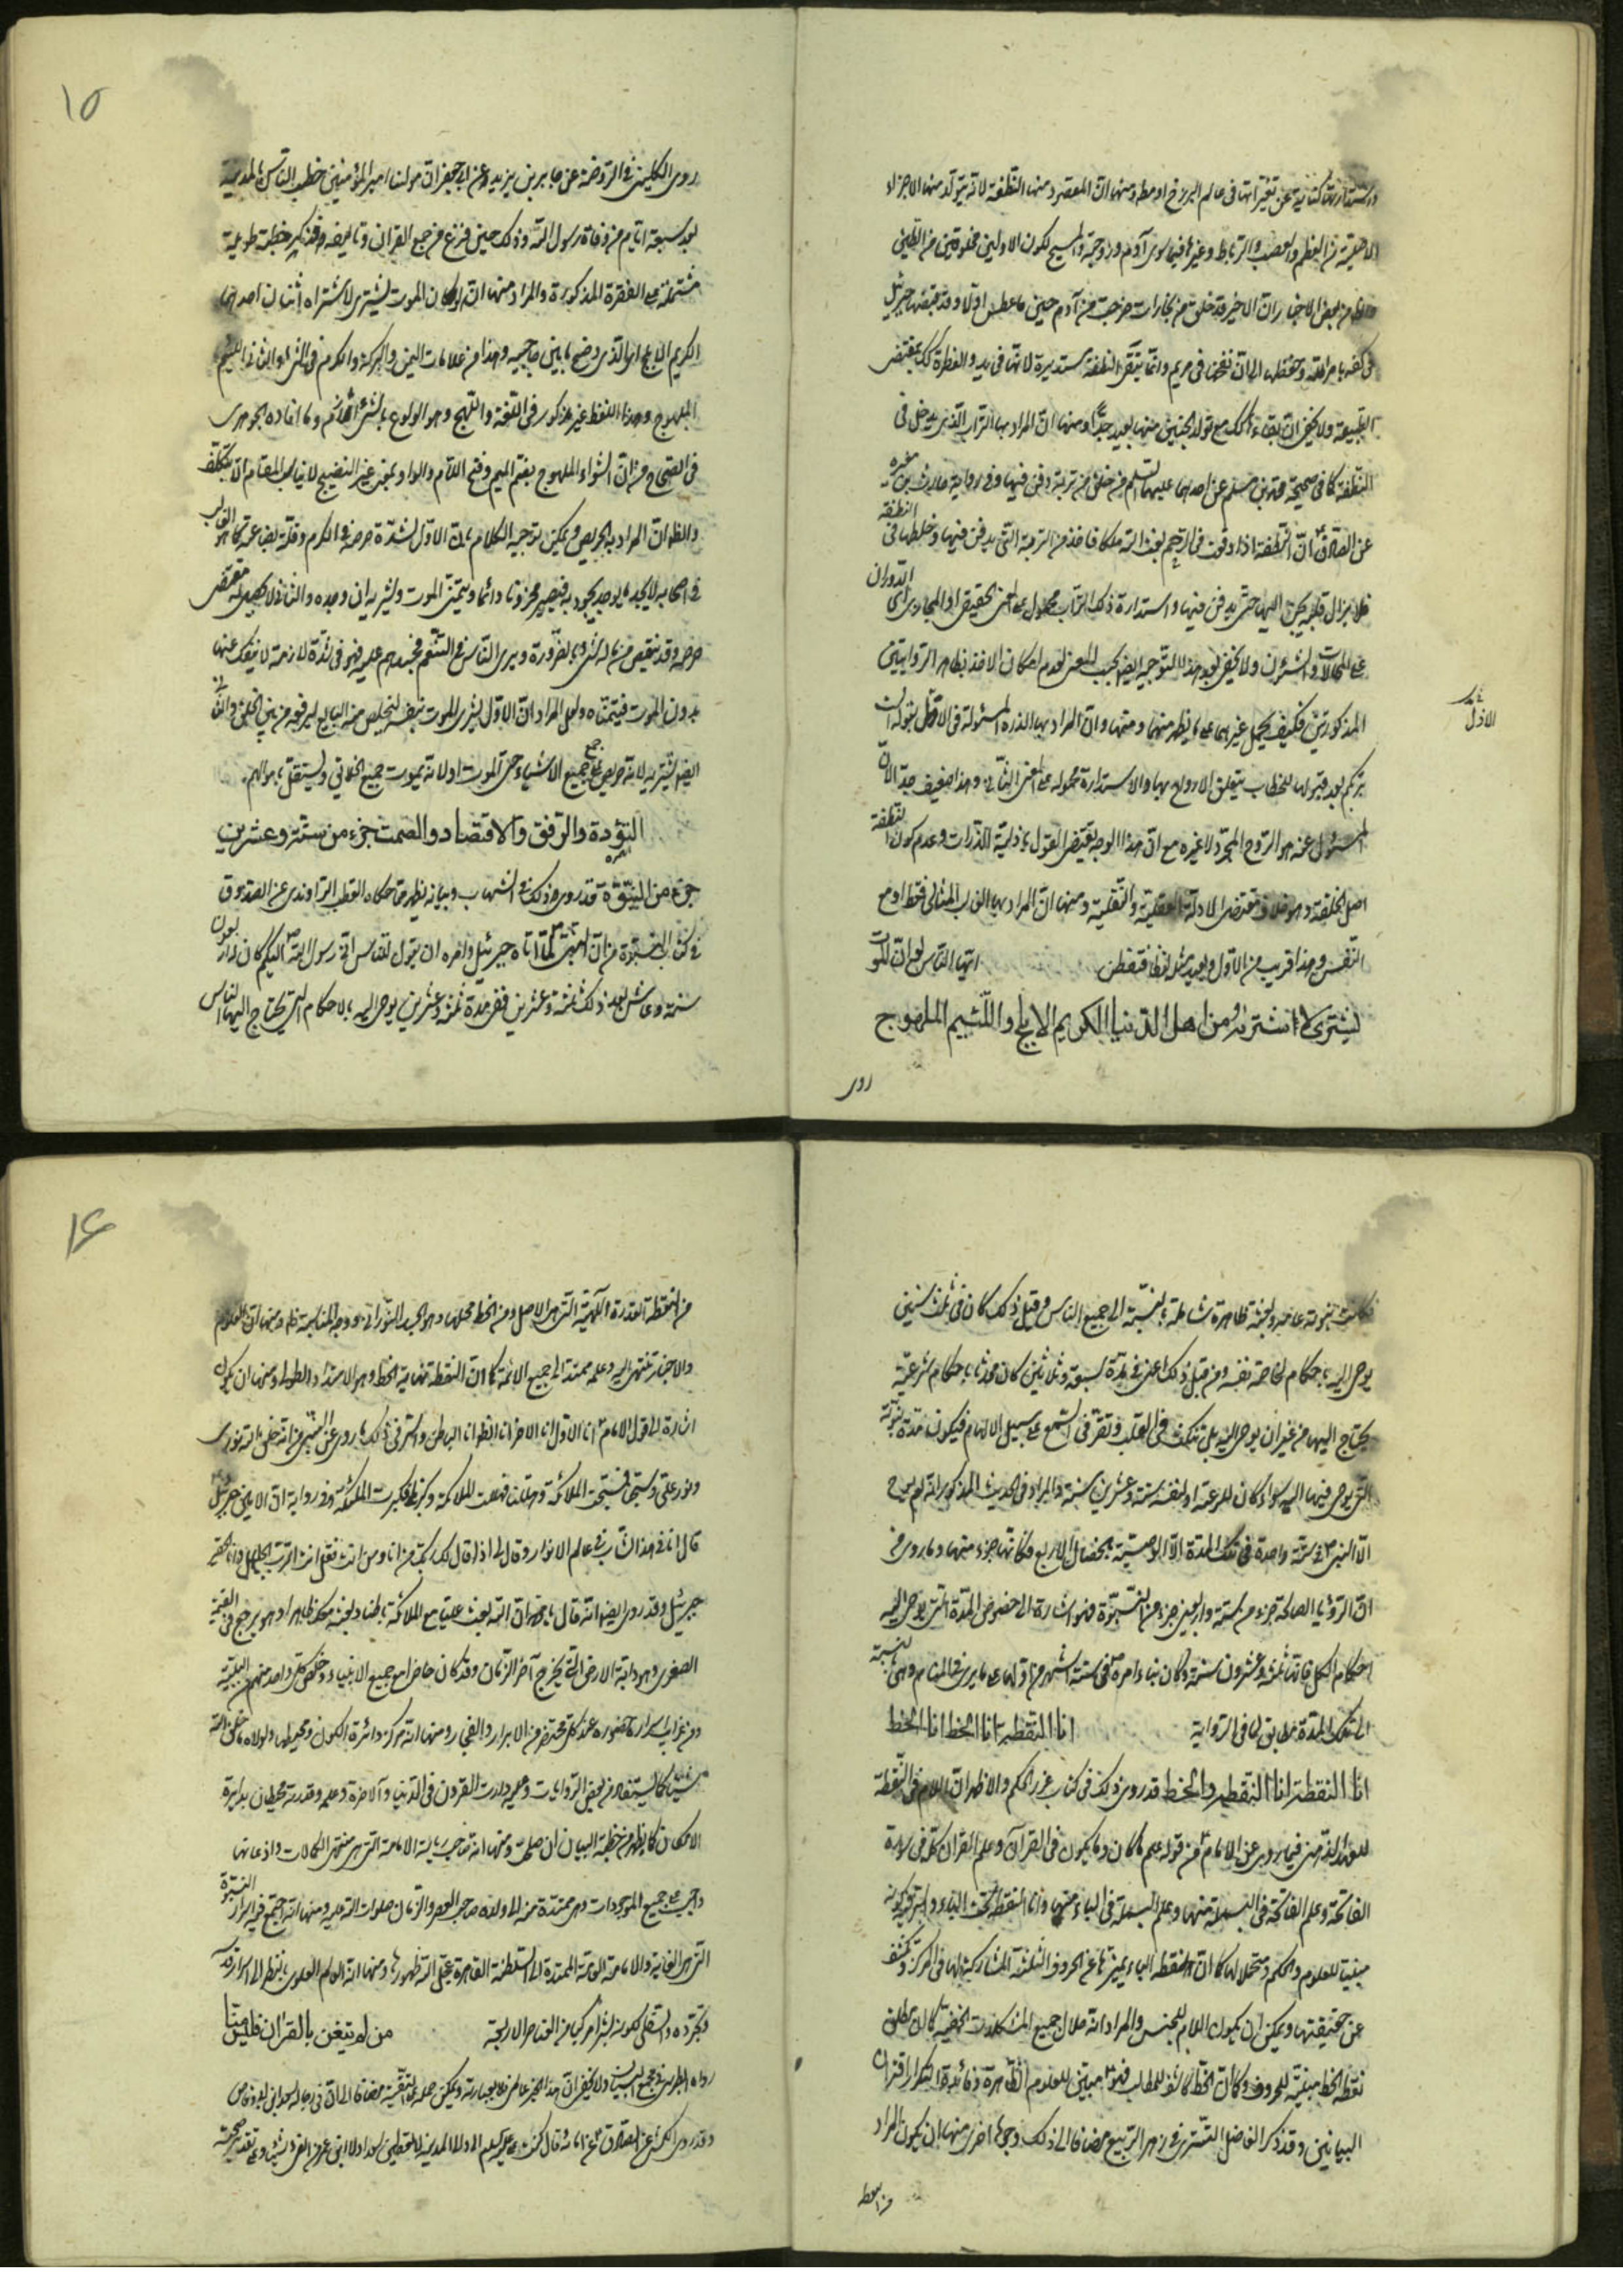 عن تغيراتها فى عالم البرزخ او مطلقا ومنها ان المقصود منها النطفة لانه يتولد منها الاجزاء
الاصلية من العظم والعصب والرباط وغيرها فيما سوى آدم وزوجته والمسيح لكون الاولين مخلوقين من الطين
من بعض الاخبار ان الاخير قد خلق من بخارات خرجت من آدم حين ما عطس اولا وقد قبضها جبرئيل
فى كفه بامر الله وحفظها الى ان نفخت فى مريم وانما تبقى النطفة مستديرة لانها فى بدو الفطرة كك بمقتضى
الطبيعة ولا يخفى ان بقاء كك مع تولد الجنين منها بعيد جدا ومنها ان المراد بها التراب الذى يدخل فى
النطفة كما فى صحيحة محمد بن مسلم عن احدهما عليهما السلم من خلق من تربة دفن فيها وفى رواية حارث بن مغيره
عن الصادق ان النطفة اذا وقعت فى الرحم بعث الله ملكا فاخذ من التربة التى يدفن فيها وخلطها فى النطفة
فلا يزال قلبه يحن اليها حتى يدفن فيها واستدارة ذلك التراب محمول على المعنى الحقيقى او المجازى اى الدوران
على الحالات والشئون ولا يخفى بعد هذا التوجيه ايضا بحسب المعنى لعدم امكان الاخذ بظاهر الروايتين
المذكورتين فكيف يحمل غيرهما على ما يظهر منهما ومنها وان المراد بها الذرة المسئولة فى الازل بقوله الست
بربكم بعد قبولها للخطاب بتعلق الارواح بها والاستدارة محموله على المعنى الثانى وهذا ضعيف جدا لان
المسئول عنه هو الروح المجرد لا غيره مع ان هذا الوجه يقتضى القول بازلية الذرات وعدم كون النطفة
اصل الخلقة وهو خلاف مقتضى الادلة العقلية والنقلية ومنها ان المراد بها القالب المثالى فقط او مع
النفس وهذا قريب من الاول وبعيد مثل لفظا فتفطن ايها الناس لو ان الموت
يشترى لاشتراه من اهل الدنيا الكريم الابلج واللئيم الملهوج
روى
الاول
١٥
روى الكلينى فى الروضة عن جابر بن يزيد عن ابى جعفر ان مولنا امير المؤمنين خطب الناس بالمدينة
بعد سبعة ايام من وفاة رسول الله وذلك حين فرغ من جمع القران وتاليفه وقد ذكر خطبة طويلة
مشتملة على الفقرة المذكورة والمراد منها انه لو كان الموت يشترى لاشتراه اثنان احدهما
الكريم الابلج اى الذى وضح ما بين حاجبيه وهذا من علامات اليمن والبركة والكرم فى والثانى اللئيم
الملهوج وهذا اللفظ غير مذكور فى اللغة واللهج وهو الولوع بالشئ وما افاده الجوهرى
فى الصحاح من ان الشواء الملهوج بضم الميم وفتح اللام والواو بمعنى غير النضيج لا يناسب المقام الا بتكلف
والظ ان المراد به الحريص ويمكن توجيه الكلام بان الاول لشدة حرصه فى الكرم وقلة بضاعته كما هو الغالب
فى اصحابه لا يجد ما يوجد يجود به فيصير محزونا دائما ويتمنى الموت ويشتريه ان وجده والثانى لا يحصل له مقتضى
حرصه وقد ينقص من ماله شئ بالضرورة ويرى الناس فى التنعم فيحسدهم عليه فهو فى شدة لازمة لا ينفك عنها
بدون الموت فيتمناه ولعل المراد ان الاول يشترى الموت لنفسه لتخليص منه البايع ليرفعه من بين الخلق والثانى
ايضا يشتريه لانه حريص على جمع جميع الاشياء حتى الموت او لانه يموت جميع الخلائق ويستقل باموالهم
التؤدة والرفق والاقتصاد والصمت جزء من ستة وعشرين
جزء من النبوة قد روى ذلك فى الشهاب وبيانه يظهر مما حكاه القطب الراوندى عن الصدوق
فى كتاب النبوة من ان النبى لما اتاه جبرئيل وامره ان يقول للناس انى رسول الله اليكم كان له اربعون
سنة وعاش بعد ذلك ثلثة وعشرين ففى مدة ثلثة وعشرين يوحى اليه بالاحكام التى يحتاج اليها الناس
فكانت نبوته عامه وبعثته ظاهرة شاملة بالنسبة الى جميع الناس وقبل ذلك كان فى ثلث سنين
يوحى اليه باحكام لخاصة نفسه ومن قبل ذلك اعنى فى مدة سبعة وثلاثين كان محدثا باحكام شرعية
يحتاج اليها من غير ان يوحى اليه بل تنكت فى القلب وتنقر فى السمع على سبيل الالهام فيكون مدة نبوته
التى يوحى فيها اليه سواء كان للرعية او لنفسه ستة وعشرين سنة والمراد فى الحديث المذكور انه لم يوح
الى النبى فى سنة واحدة فى تلك المدة الا الوصية بالخصال الاربع فكانها جزء منها وما روى من
ان الرؤيا الصالحة جزء من ستة واربعين جزء من النبوة فهو اشارة الى خصوص المدة التى يوحى اليه
احكام الكل فانها ثلثة وعشرون سنة وكان بناء امره فى ستة اشهر من اولها على ما يرى فى المنام وهى بالنسبة
الى تلك المدة مطابق لما فى الرواية انا النقطة انا الخط انا الخط
انا النقطة انا النقطة والخط قد روى ذلك فى كتاب غرر الحكم والاظهر ان اللام فى النقطة
للعهد الذهنى فيما روى عن الامام من قوله علم ما كان وما يكون فى القرآن وعلم القرآن كله فى سورة
الفاتحة وعلم الفاتحة فى البسملة منها وعلم البسملة فى الباء منها وانا النقطة تحت الباء
مبينا للعلوم والحكم ومتحملا لها كما ان النقطة الباء يميزها عن الحروف الثلثة المشاركة لها فى المركز وتكشف
عن حقيقتها ويمكن ان يكون اللام للجنس والمراد انه حلال جميع المشكلات الخفية كما ان مطلق
نقطة الخط مبينة للحروف وكما ان الخط كاشف للمطالب فهو مبين للعلوم الظاهرة وفائدة التكرار اقتران
البيانين وقد ذكر الفاضل التسترى فى زهر الربيع مضافا الى ذلك وجوها اخرى منها ان يكون المراد
من النقطة
١٦
من النقطة القدرة الالهية التى هى الاصل ومن الخط محلها وهو الجسد النورانى ووجه المناسبة ظ ومنها ان العلوم
والاخبار تنتهى اليه وعلمه ممتد الى جميع الائمة كما ان النقطة نهاية الخط وهو الامتداد والطول ومنها ان يكون
اشارة الى قول الامام انا الاول انا الاخر انا الظ انا الباطن والسر فى ذلك ما روى عن النبى من انه خلق الله نورى
ونور على وسبحنا فسبحت الملائكة وهللنا فهللت الملائكة وكبرنا فكبرت الملائكة وفى رواية ان الامين جبرئيل
قال انا فى هذا الباب فى عالم الانوار وقال لى اذا قال لك ربك من انا ومن انت فقل انت الرب الجليل وانا العبد
جبرئيل وقد روى ايضا انه قال ما ان الله بعث عليا مع الملائكة باطنا وبعثه معك ظاهرا وهو يرجع فى القيمة
الصغرى وهو دابة الارض التى يخرج آخر الزمان وقد كان حاضرا مع جميع الانبياء وخلص كل واحد منهم من البلية
ومن غرايب اسراره حضوره عند كل محتضر من الابرار والفجار ومنها انه مركز دائرة الكون ومحيطها ولولاه ما خلق الله
شيئا كما يستفاد من بعض الروايات وعليه دارت القرون فى الدنيا والآخرة وعلمه وقدرته محيطان بدايرة
الامكان كما يظهر من خطبة البيان ان صحت ومنها انه صاحب رياسة الامامة التى هى منتهى الكمالات واذعانها
واجب على جميع الموجودات وهى ممتدة منه الى ولده صاحب العصر والزمان صلوات الله عليه ومنها انه اجتمع فيه اسرار النبوة
التى هى الغاية والامامة العامة الممتدة الى السلطنة القاهرة عجل الله ظهورها ومنها انه العالم العلوى بالنظر الى اسرار قدره
وتجرده والسفلى لكونه بشرا مركبا من العناصر الاربعة من لم يتغن بالقران فليس منا
رواه الطبرسى فى مجمع البيان ولا يخفى ان هذا الخبر عامى ويمكن حمله على التقية مضافا الى ان فى رجاله سعد بن ابى وقاص